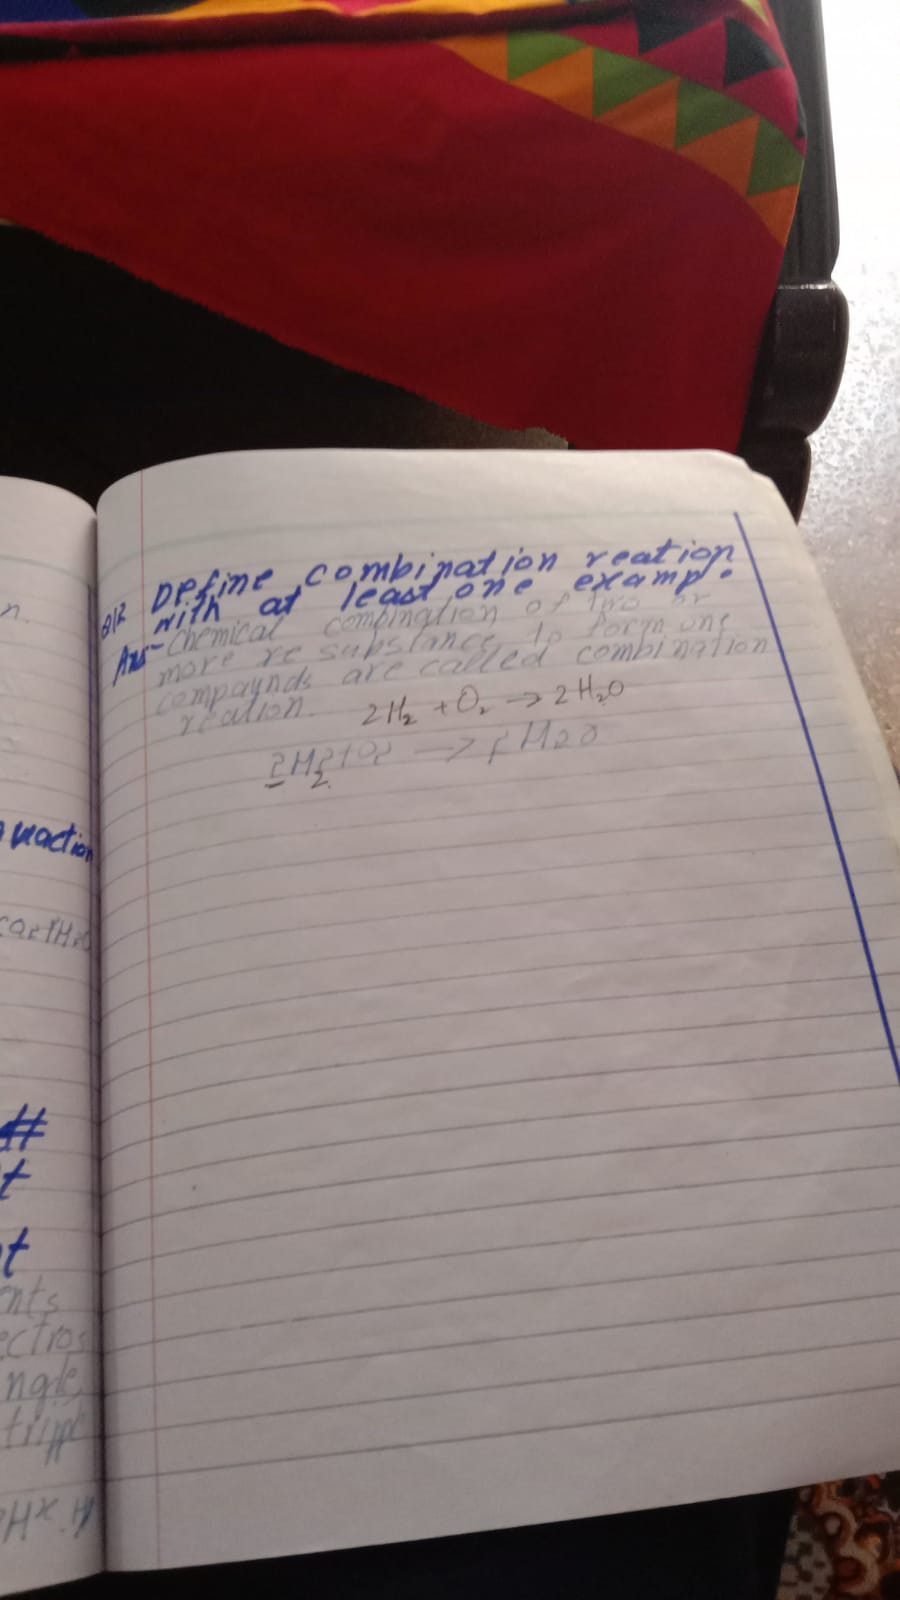 n.
reaction
#
t
t
ents
ectros
ngle
tripple
Q12 Define combination reation
with at least one examp.
Ans- Chemical combination of two or
more re substance to form one
compaynds are called combination
reation.
2H₂ + O₂ → 2H₂O
2H2+O2 → 2H2O